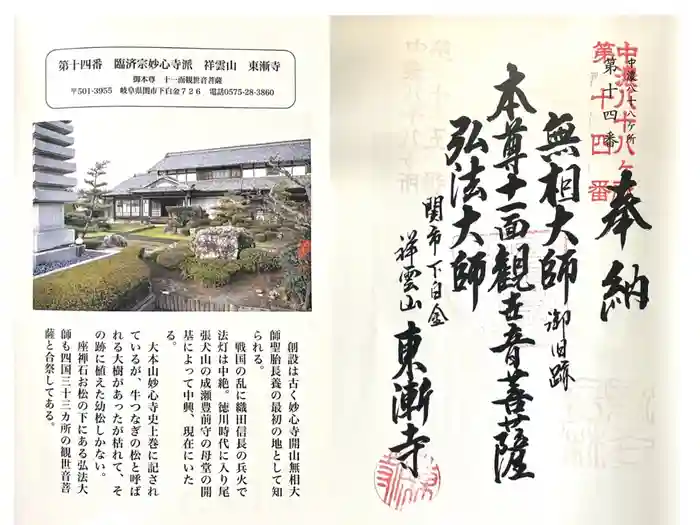 第十四番　臨済宗妙心寺派　祥雲山　東漸寺
御本尊　十一面観世音菩薩
〒501-3955　岐阜県関市下白金７２６　電話0575-28-3860
創設は古く妙心寺開山無相大
師聖胎長養の最初の地として知
られる。
戦国の乱に織田信長の兵火で
法灯は中絶。徳川時代に入り尾
張犬山の成瀬豊前守の母堂の開
基によって中興、現在にいた
る。
大本山妙心寺史上巻に記され
ているが、牛つなぎの松と呼ば
れる大樹があったが枯れて、そ
の跡に植えた幼松しかない。
座禅石お松の下にある弘法大
師も四国三十三カ所の観世音菩
薩と合祭してある。
奉納
中濃八十八ヶ所
第十四番
中濃八十八ヶ所
第十四番
無相大師御旧跡
本尊十一面観世音菩薩
弘法大師
関市下白金
祥雲山東漸寺